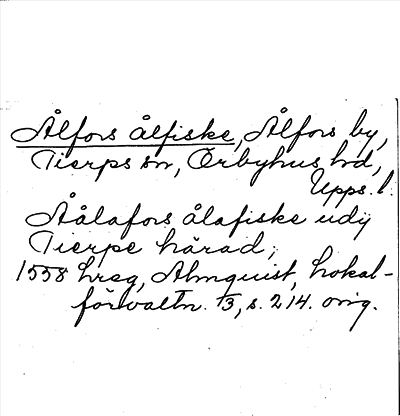 Ålfors ålfiske, Ålfors by,
Tierps sn, Örbyhus hd,
Upps. l.
Åålafors ålafiske udij
Tierpe härad;
1558 hreg, Almquist, Lokal-
förvaltn. 1/3, s. 214. orig.